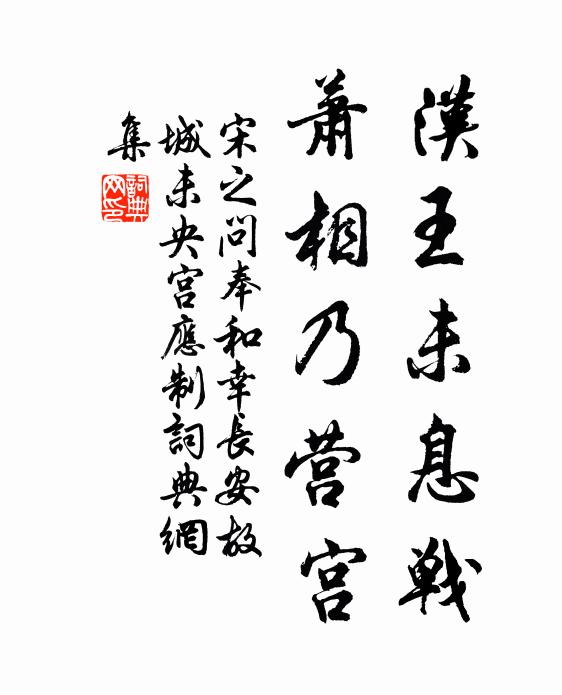 漢王未息戰
蕭相乃营宫
宋之问奉和幸長安故
城未央宫應制詞典網
集
詞典
网印